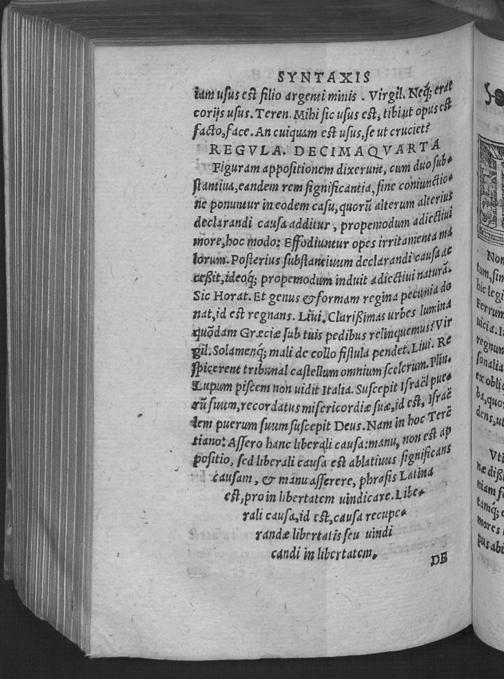 SYNTAXIS
tam usus est filio argenti minis . Virgil. Neq; erat
corijs usus. Teren. Mihi sic usus est, tibi ut opus est
facto, face. An cuiquam est usus, se ut cruciet?
REGVLA. DECIMAQVARTA
Figuram appositionem dixerunt, cum duo sub-
stantiua, eandem rem significantia, sine coniunctio-
ne ponuntur in eodem casu, quorū alterum alterius
declarandi causa additur, propemodum adiectiui
more, hoc modo: Effodiuntur opes irritamenta ma
lorum. Posterius substantiuum declarandi causa ac
ceßit, ideoq; propemodum induit adiectiui naturā.
Sic Horat. Et genus & formam regina pecunia do
nat, id est regnans. Liui. Clarißimas urbes lumina
quōdam Græciæ sub tuis pedibus relinquemus? Vir
gil. Solamenq; mali de collo fistula pendet. Liui. Re
spicerent tribunal castellum omnium scelerum. Plin.
Lupum piscem non uidit Italia. Suscepit Israël pue-
rū suum, recordatus misericordiæ suæ, id est, Israë
lem puerum suum suscepit Deus. Nam in hoc Terē
tiano: Assero hanc liberali causa manu, non est ap
positio, sed liberali causa est ablatiuus significans
causam, & manu asserere, phrasis Latina
est, pro in libertatem uindicare. Libe-
rali causa, id est, causa recupe-
randæ libertatis seu uindi
candi in libertatem.
DE
Non
hic legi
Ferrum
regnum
Vti